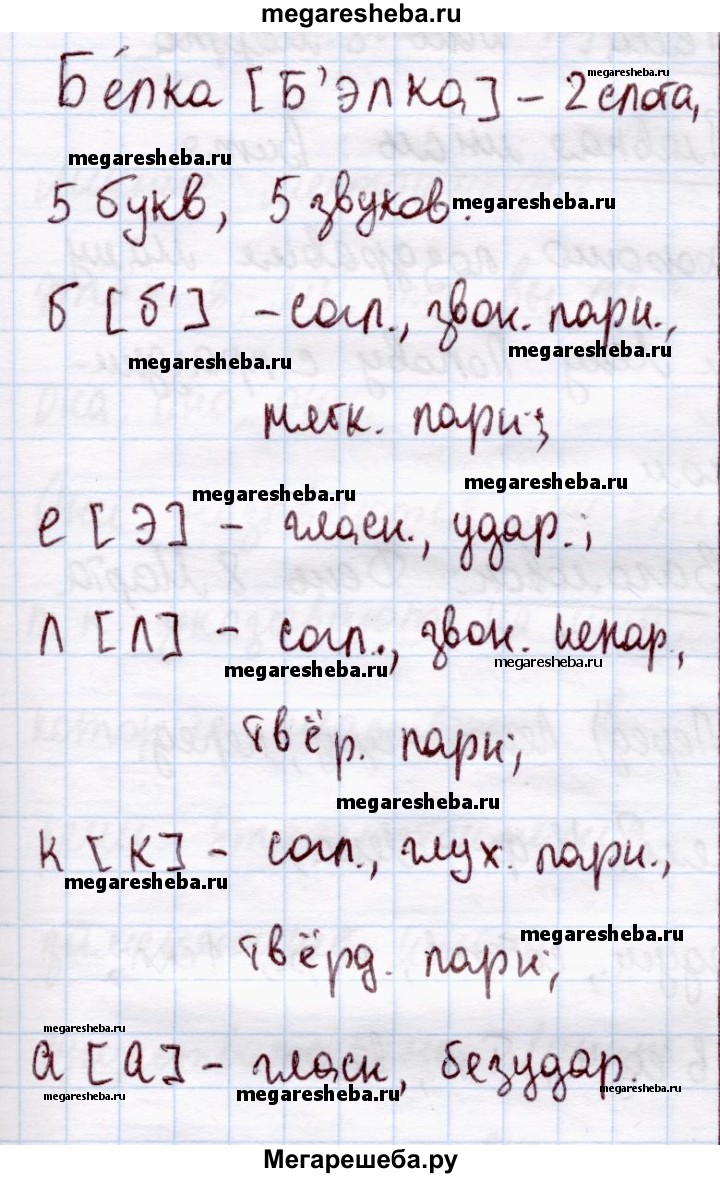 megaresheba.ru
Бе́лка [Б'элка] – 2 слога,
megaresheba.ru
megaresheba.ru
5 букв, 5 звуков.
megaresheba.ru
б [б'] – согл., звон. парн.,
megaresheba.ru
megaresheba.ru
мягк. парн.;
megaresheba.ru
megaresheba.ru
е [э] – гласн., удар.;
л [л] – согл., звон. непар.,
megaresheba.ru
megaresheba.ru
твёр. парн;
megaresheba.ru
к [к] – согл., глух. парн.,
megaresheba.ru
megaresheba.ru
твёрд. парн;
megaresheba.ru
а [а] – гласн, безудар.
megaresheba.ru
megaresheba.ru
megaresheba.ru
Мегарешеба.ру